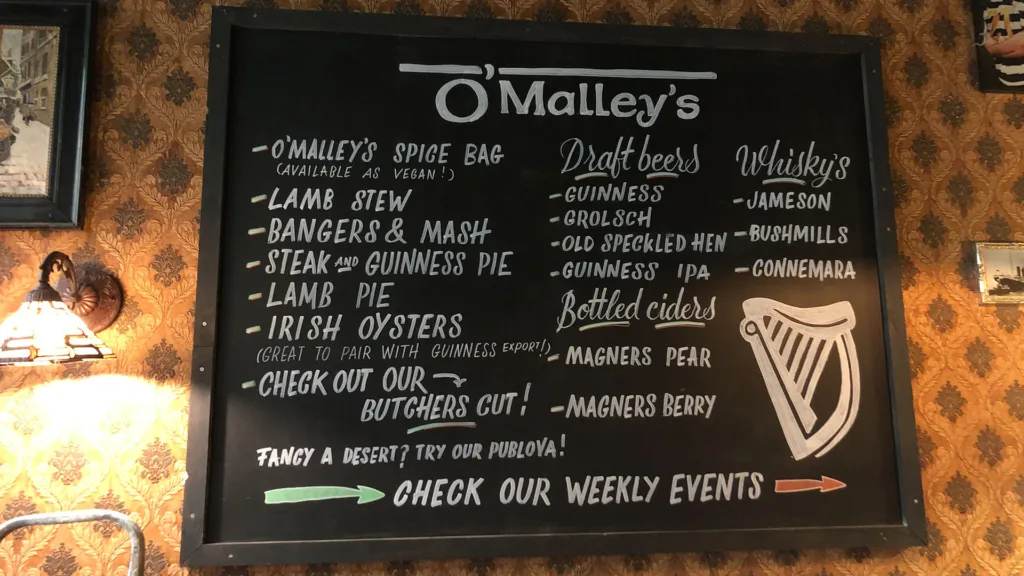 O'Malley's
- O'MALLEY'S SPIGE BAG
(AVAILABLE AS VEGAN!)
- LAMB STEW
- BANGERS & MASH
- STEAK AND GUINNESS PIE
- LAMB PIE
- IRISH OYSTERS
(GREAT TO PAIR WITH GUINNESS EXPORT!)
- CHECK OUT OUR
BUTCHERS CUT!
Draft beers
- GUINNESS
- GROLSCH
- OLD SPECKLED HEN
- GUINNESS IPA
Bottled ciders
- MAGNERS PEAR
- MAGNERS BERRY
Whisky's
- JAMESON
- BUSHMILLS
- CONNEMARA
FANCY A DESERT? TRY OUR PUBLOVA!
CHECK OUR WEEKLY EVENTS